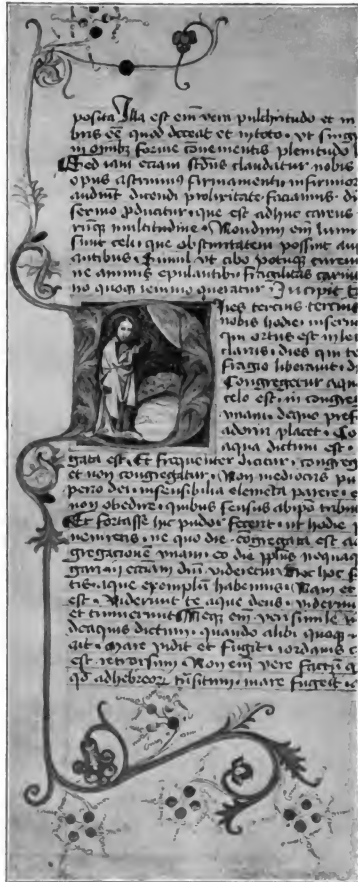 posita Illa est em̄ vera pulchritudo et in
bris eē quod deceat et in toto · ut sing
in om̄ib3 forme conuenientis plenitudo l
Sed iam eciam sc̄dus claudatur nobis
opus astruim9 firmamenti infirmior
audiūt dicendi prolixitate faciamus · di
sermo p̄ducatur · que est adhuc carens
multitudine · Nondum em̄ lum
sunt celi · que obscuritatem possint au
Simul ut cibo potuq3 careni
ne animis epulantib3 fragilitas carni
no quoq3 ieiuno queratur · Incipit t
Dies tercius tercius
nobis hodie in sermo
qui ortus est in lec
clarus · dies qui te
fragio liberauit · d
Congregetur aqu
celo est · in congreg
unam · deque pref
adoriri placet · Co
aqua dictum est ·
gata est · Et frequenter dicitur · congreg
et non congregatur · Non mediocris pu
pero dei · insensibilia elemēta parere · e
non obedire · quibus sensus ab ip̄o tribut
Et fortasse hic pudor fecerit · ut hodie
ueniretis · ne quo die · cōgregata est aq
gregacionē unam · eo die pp̄lus nequaq
in eccām dn̄i videretur Nec hoc s
tis · aque exemplū habemus · Nam et
est · Viderunt te aque deus · viderunt
et timuerunt Neq3 em̄ veri simile v
deaquis dictum · quando alibi quoq3 in
ait · Mare vidit et fugit · iordanis c
est retrorsum Non em̄ vere factū q
qd̄ ad hebreor t̄nsitum · mare fugerit · e